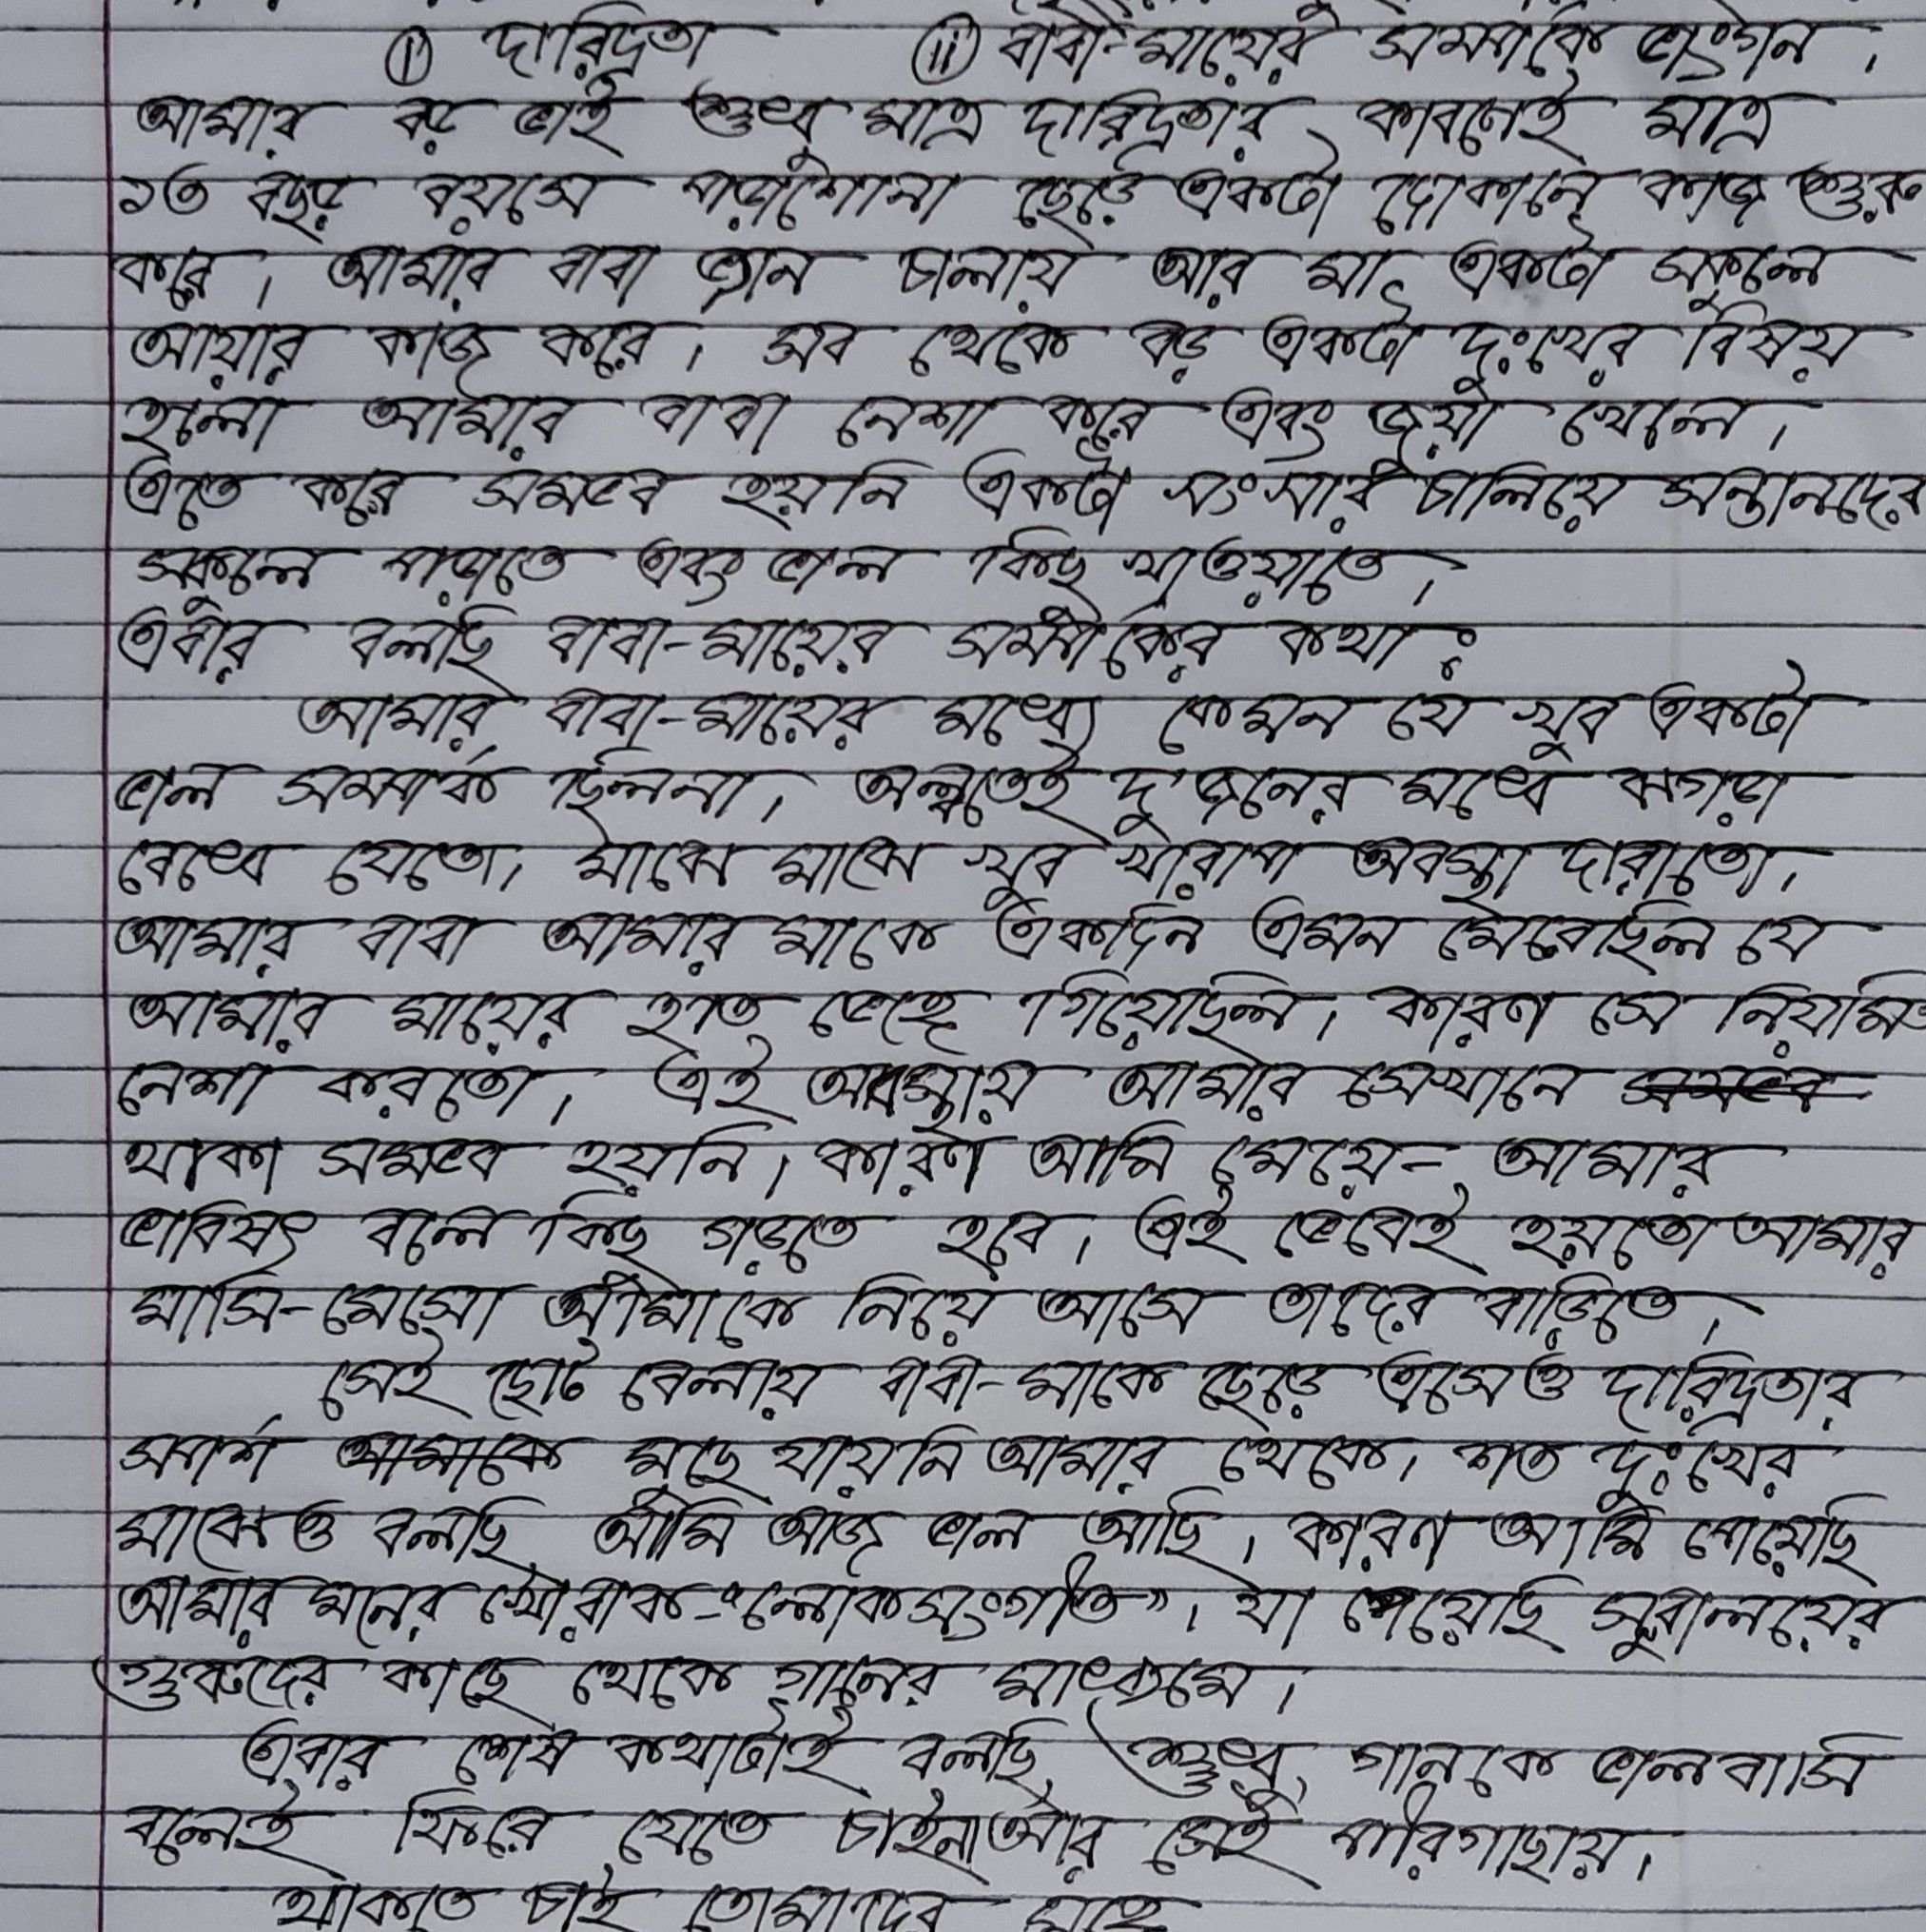 (i) দারিদ্রতা (ii) বাবা-মায়ের সম্পর্কে ভাংগন।
আমার বড় ভাই শুধু মাত্র দারিদ্রতার কারণেই মাত্র
১৩ বছর বয়সে পড়াশোনা ছেড়ে একটা দোকানে কাজ শুরু
করে। আমার বাবা ভ্যান চালায় আর মা একটা স্কুলে
আয়ার কাজ করে। সব থেকে বড় একটা দুঃখের বিষয়
হলো আমার বাবা নেশা করে এবং জুয়া খেলে।
এতে করে সম্ভব হয়নি একটা সংসার চালিয়ে সন্তানদের
স্কুলে পড়াতে এবং ভাল কিছু খাওয়াতে।
এবার বলছি বাবা-মায়ের সম্পর্কের কথা:
আমার বাবা-মায়ের মধ্যে কেমন যে খুব একটা
ভাল সম্পর্ক ছিলনা। অল্পতেই দুজনের মধ্যে ঝগড়া
বেধে যেতো। মাঝে মাঝে খুব খারাপ অবস্থা দারাতো।
আমার বাবা আমার মাকে একদিন এমন মেরেছিল যে
আমার মায়ের হাত ভেঙ্গে গিয়েছিল। কারণ সে নিয়মিত
নেশা করতো। এই অবস্থায় আমার সেখানে
থাকা সম্ভব হয়নি। কারণ আমি মেয়ে- আমার
ভবিষৎ বলে কিছু গড়তে হবে। এই ভেবেই হয়তো আমার
মাসি-মেসো আমাকে নিয়ে আসে তাদের বাড়িতে।
সেই ছোট বেলায় বাবা-মাকে ছেড়ে এসেও দারিদ্রতার
স্পর্শ আমাকে মুছে যায়নি আমার থেকে। শত দুঃখের
মাঝেও বলছি আমি আজ ভাল আছি। কারণ আমি পেয়েছি
আমার মনের খোরাক-"লোকসংগীত"। যা পেয়েছি সুরালয়ের
গুরুদের কাছে থেকে গানের মাধ্যমে।
এবার শেষ কথাটাই বলছি, শুধু গানকে ভালবাসি
বলেই ফিরে যেতে চাইনা আর সেই পারিগাছায়।
থাকতে চাই তোমাদের মাঝে